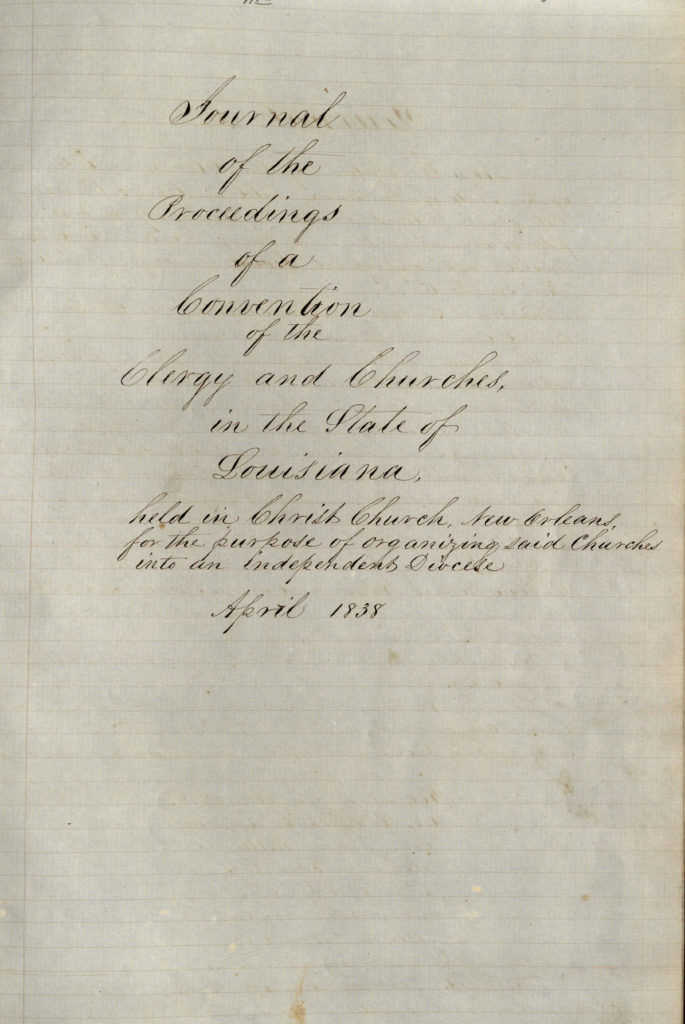 Journal
of the
Proceedings
of a
Convention
of the
Clergy and Churches,
in the State of
Louisiana,
held in Christ Church, New Orleans,
for the purpose of organizing said Churches
into an independent Diocese
April 1838